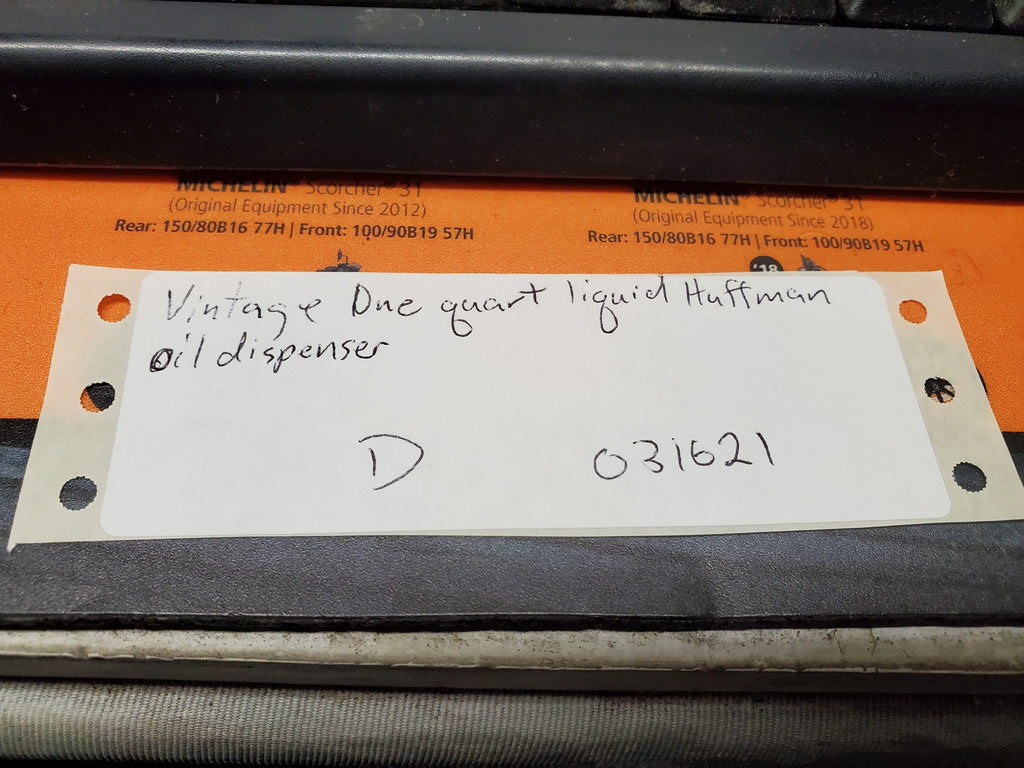 MICHELIN® Scorcher® 31
(Original Equipment Since 2012)
Rear: 150/80B16 77H | Front: 100/90B19 57H
MICHELIN® Scorcher® 31
(Original Equipment Since 2018)
Rear: 150/80B16 77H | Front: 100/90B19 57H
'18
Vintage One quart liquid Huffman
oil dispenser
D 031621